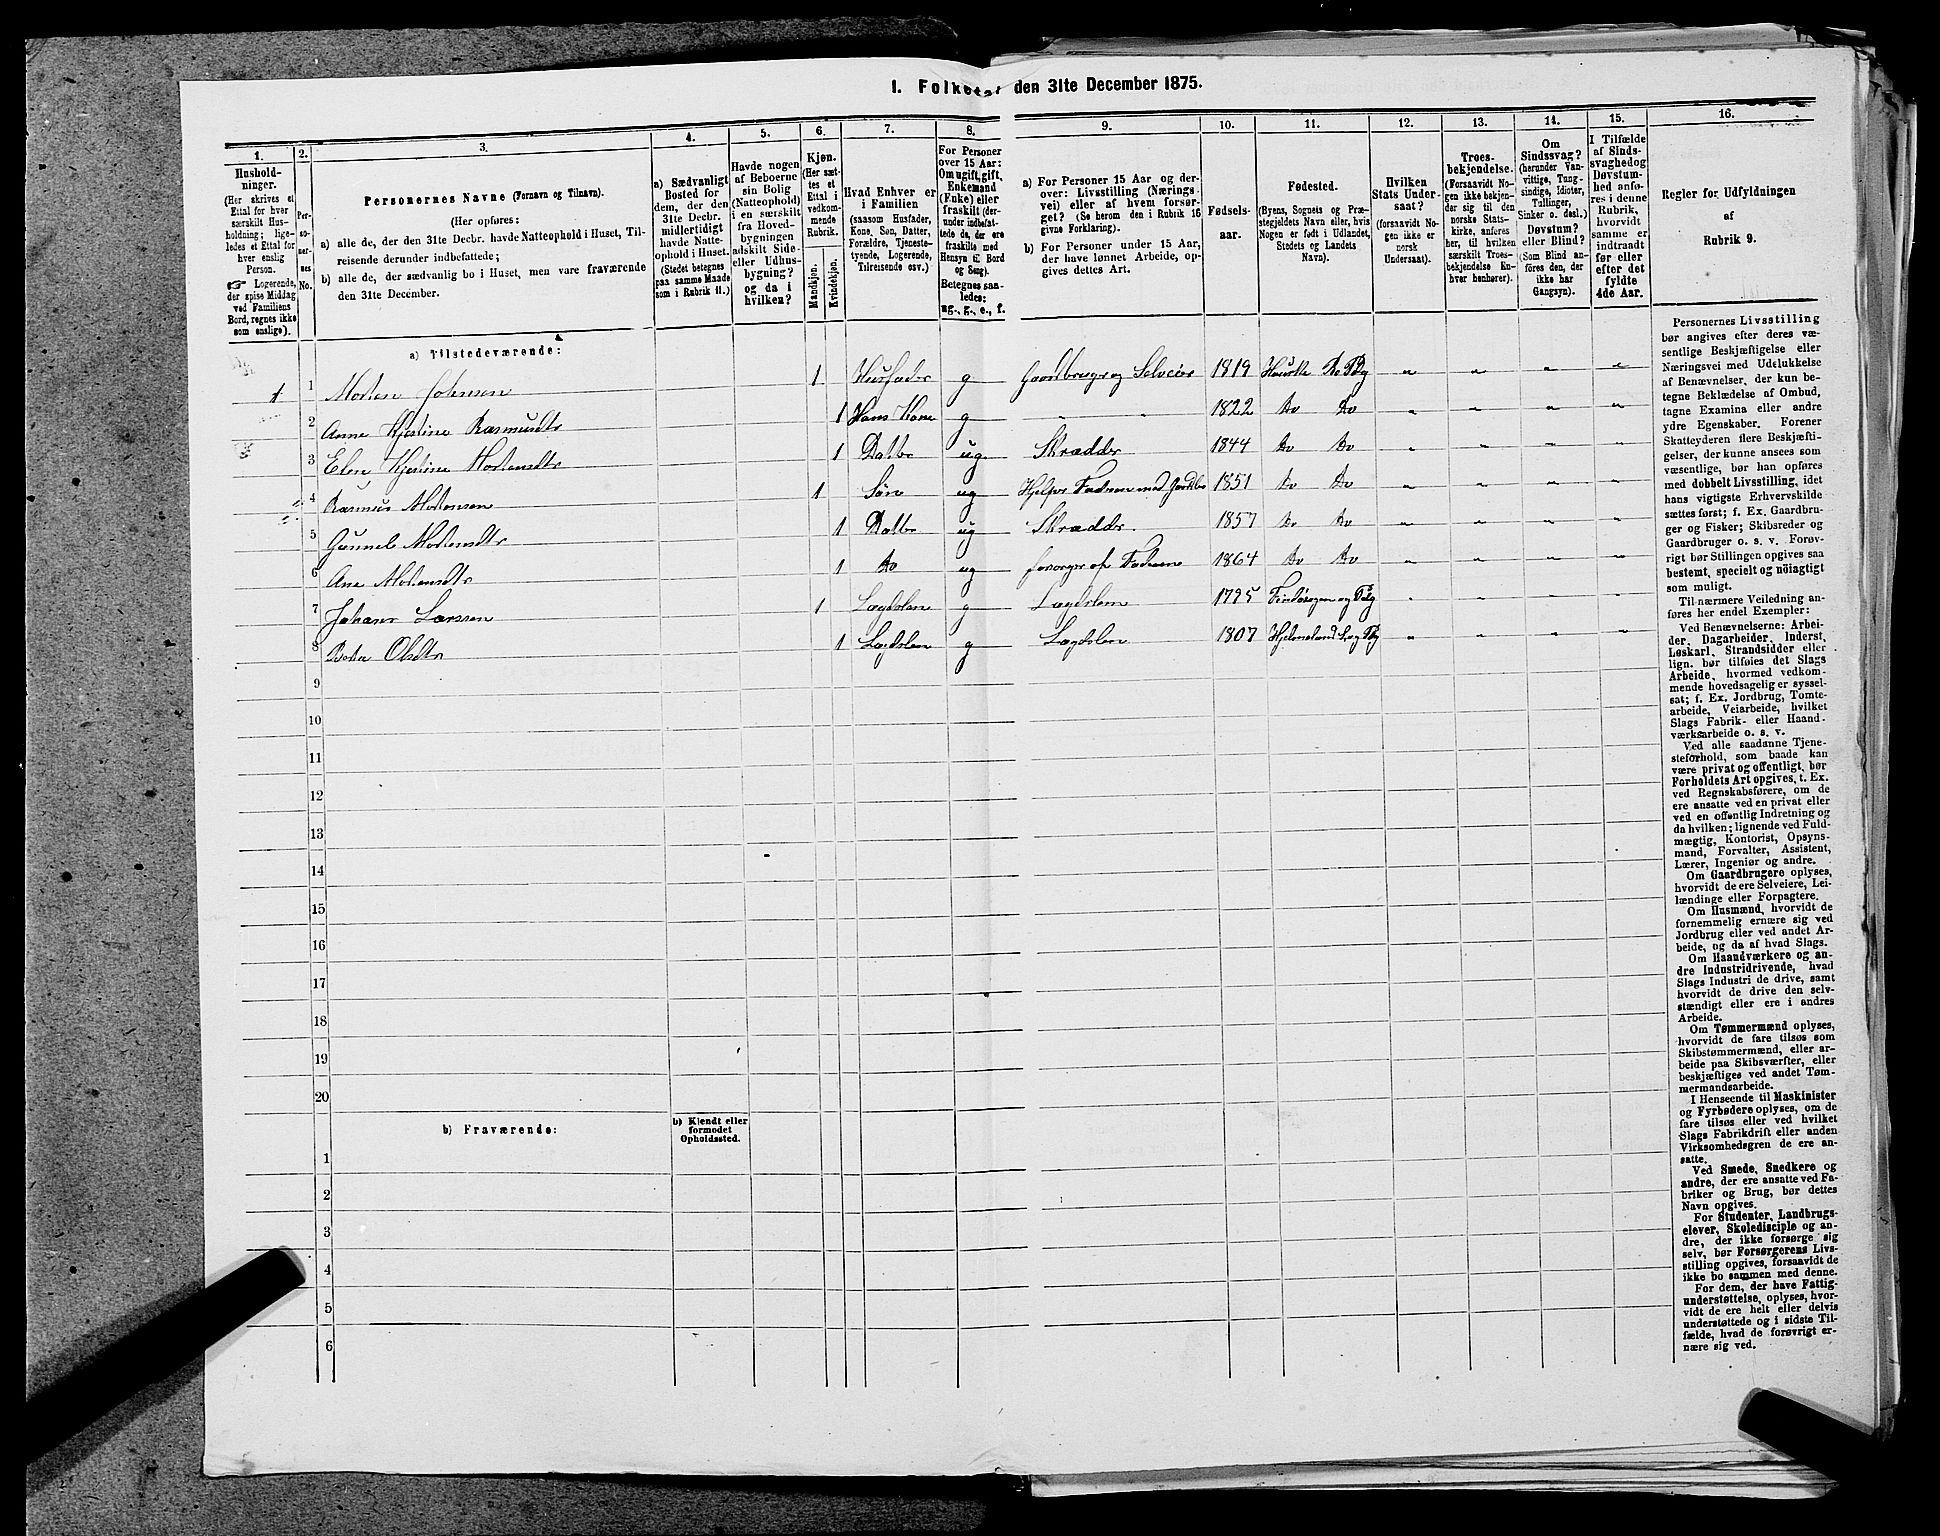 I. Folketal den 31te December 1875.
1. 2. 3. 4. 5. 6. 7. 8. 9. 10. 11. 12. 13. 14. 15. 16.
Hushold-
ninger.
(Her skrives et
Ettal for hver
særskilt Hus-
holdning; lige-
ledes et Ettal for
hver enslig
Person.
☞ Logerende,
der spise Middag
ved Familiens
Bord, regnes ikke
som enslige).
Per-
so-
ner-
nes
No.
Personernes Navne (Fornavn og Tilnavn).
(Her opføres:
a) alle de, der den 31te Decbr. havde Natteophold i Huset, Til-
reisende derunder indbefattede;
b) alle de, der sædvanlig bo i Huset, men vare fraværende
den 31te December.
a) Sædvanligt
Bosted for
dem, der den
31te Decbr.
midlertidigt
havde Natte-
ophold i Huset.
(Stedet betegnes
paa samme Maade
som i Rubrik 11.)
Havde nogen
af Beboerne
sin Bolig
(Natteophold)
i en særskilt
fra Hoved-
bygningen
adskilt Side-
eller Udhus-
bygning?
og da i
hvilken?
Kjøn.
(Her sæt-
tes et
Ettal i
vedkom-
mende
Rubrik.)
Mandkjøn.
Kvindekjøn.
Hvad Enhver er
i Familien
(saasom Husfader,
Kone, Søn, Datter,
Forældre, Tjeneste-
tyende, Logerende,
Tilreisende osv.)
For Personer
over 15 Aar:
Om ugift, gift,
Enkemand
(Enke) eller
fraskilt (der-
under indbefat-
tede de, der ere
fraskilte med
Hensyn til Bord
og Seng).
Betegnes saa-
ledes:
ug., g., e., f.
a) For Personer 15 Aar og der-
over: Livsstilling (Nærings-
vei) eller af hvem forsør-
get? (Se herom den i Rubrik 16
givne Forklaring).
b) For Personer under 15 Aar,
der have lønnet Arbeide, op-
gives dettes Art.
Fødsels-
aar.
Fødested.
(Byens, Sognets og Præ-
stegjeldets Navn eller, hvis
Nogen er født i Udlandet,
Stedets og Landets
Navn).
Hvilken
Stats Under-
saat?
(forsaavidt No-
gen ikke er
norsk
Undersaat).
Troes-
bekjendelse.
(Forsaavidt No-
gen ikke bekjen-
der sig til den
norske Stats-
kirke, anføres
her, til hvilken
særskilt Troes-
bekjendelse En-
hver henhører).
Om
Sindssvag?
(herunder Van-
vittige, Tung-
sindige, Idioter,
Tullinger,
Sinker o. desl.)
Døvstum?
eller Blind?
(Som Blind an-
føres den, der
ikke har
Gangsyn).
I Tilfælde
af Sinds-
svaghed og
Døvstum-
hed anfø-
res i denne
Rubrik,
hvorvidt
samme er
indtraadt
før eller
efter det
fyldte
4de Aar.
Regler for Udfyldningen
af
Rubrik 9.
a) Tilstedeværende:
1 1 Morten Johnsen 1 Husfader g Gaardbruger og Selveier 1819 Do Pg
2 Anne Kjestine Rasmusdtr 1 Hans Kone g " " 1822 Do Do
3 Elen Kjestine Mortensdtr 1 Datter ug Skrædder 1844 Do Do
4 Rasmus Mortensen 1 Søn ug Hjelper Faderen med 1851 Do Do
5 Gunnel Mortensdtr 1 Datter ug Skrædder 1857 Do Do
6 Ane Mortensdtr 1 Do ug forsørget af Faderen 1864 Do Do
7 Johans Larssen 1 Lægdslem g Lægdslem 1795 Findøsogn og Pg
8 Berta Olsdtr 1 Lægdslem g Lægdslem 1807 Hjelmeland S og Pg
9
10
11
12
13
14
15
16
17
18
19
20
b) Fraværende:
b) Kjendt eller
formodet
Opholdssted.
1
2
3
4
5
6
Personernes Livsstilling
bør angives efter deres væ-
sentlige Beskjæftigelse eller
Næringsvei med Udelukkelse
af Benævnelser, der kun be-
tegne Beklædelse af Ombud,
tagne Examina eller andre
ydre Egenskaber. Forener
Skatteyderen flere Beskjæfti-
gelser, der kunne ansees som
væsentlige, bør han opføres
med dobbelt Livsstilling, idet
hans vigtigste Erhvervskilde
sættes først; f. Ex. Gaardbru-
ger og Fisker; Skibsreder og
Gaardbruger o. s. v. Forøv-
rigt bør Stillingen opgives saa
bestemt, specielt og nöiagtigt
som muligt.
Til nærmere Veiledning an-
føres her endel Exempler:
Ved Benævnelserne: Arbei-
der, Dagarbeider, Inderst,
Løskarl, Strandsidder eller
lign. bør tilføies det Slags
Arbeide, hvormed vedkom-
mende hovedsagelig er syssel-
sat; f. Ex. Jordbrug, Tomte-
arbeide, Veiarbeide, hvilket
Slags Fabrik- eller Haand-
værksarbeide o. s. v.
Ved alle saadanne Tjene-
steforhold, som baade kan
være privat og offentligt, bør
Forholdets Art opgives, t. Ex.
ved Regnskabsførere, om de
ere ansatte ved en privat eller
ved en offentlig Indretning og
da hvilken; lignende ved Fuld-
mægtig, Kontorist, Opsyns-
mand, Forvalter, Assistent,
Lærer, Ingeniør og andre.
Om Gaardbrugere oplyses,
hvorvidt de ere Selveiere, Lei-
lændinge eller Forpagtere.
Om Husmænd, hvorvidt de
fornemmelig ernære sig ved
Jordbrug eller ved andet Ar-
beide, og da af hvad Slags.
Om Haandværkere og an-
dre Industridrivende, hvad
Slags Industri de drive, samt
hvorvidt de drive den selv-
stændigt eller ere i andres
Arbeide.
Om Tømmermænd oplyses,
hvorvidt de fare tilsøs som
Skibstømmermænd, eller ar-
beide paa Skibsværfter, eller
beskjæftiges ved andet Tøm-
mermandsarbeide.
I Henseende til Maskinister
og Fyrbødere oplyses, om de
fare tilsøs eller ved hvilket
Slags Fabrikdrift eller anden
Virksomhedsgren de ere an-
satte.
Ved Smede, Snedkere og
andre, der ere ansatte ved Fa-
briker og Brug, bør dettes
Navn opgives.
For Studenter, Landbrugs-
elever, Skoledisciple og an-
dre, der ikke forsørge sig
selv, bør Forsørgerens Livs-
stilling opgives, forsaavidt de
ikke bo sammen med denne.
For dem, der have Fattig-
understøttelse, oplyses, hvor-
vidt de ere helt eller delvis
understøttede og i sidste Til-
fælde, hvad de forøvrigt er-
nære sig ved.